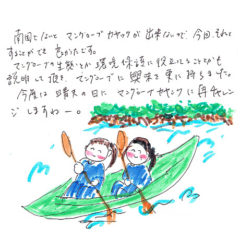 南国でないと マングローブカヤックが 出来ないので 今回、それを
することができ 良かったです。
マングローブの生態とか 環境保護に役立つことなども
説明して頂き、マングローブに 興味を 更に持ちました。
今度は 晴天の日に マングローブカヤックに 再チャレン
ジしますねー。